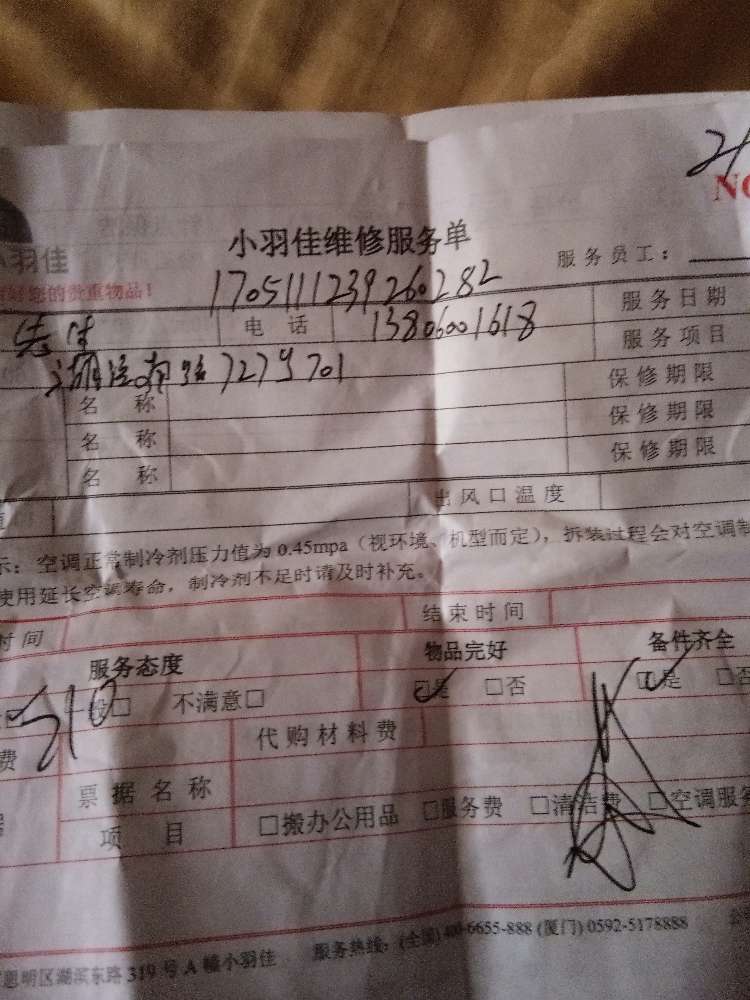 NO
小羽佳维修服务单
小羽佳
服务员工：
好您的贵重物品！
1705111239260282
服务日期
先生 电话 13806001618
服务项目
湖滨南路727号701
保修期限
名称
保修期限
名称
保修期限
名称
出风口温度
示：空调正常制冷剂压力值为0.45mpa（视环境、机型而定），拆装过程会对空调制
使用延长空调寿命，制冷剂不足时请及时补充。
时间 结束时间
服务态度 物品完好 备件齐全
般□ 不满意□ □是 □否 □是 □否
310
费 代购材料费
票据名称
项目 □搬办公用品 □服务费 □清洁费 □空调服务
思明区湖滨东路319号A幢小羽佳 服务热线：(全国)400-6655-888 (厦门)0592-5178888